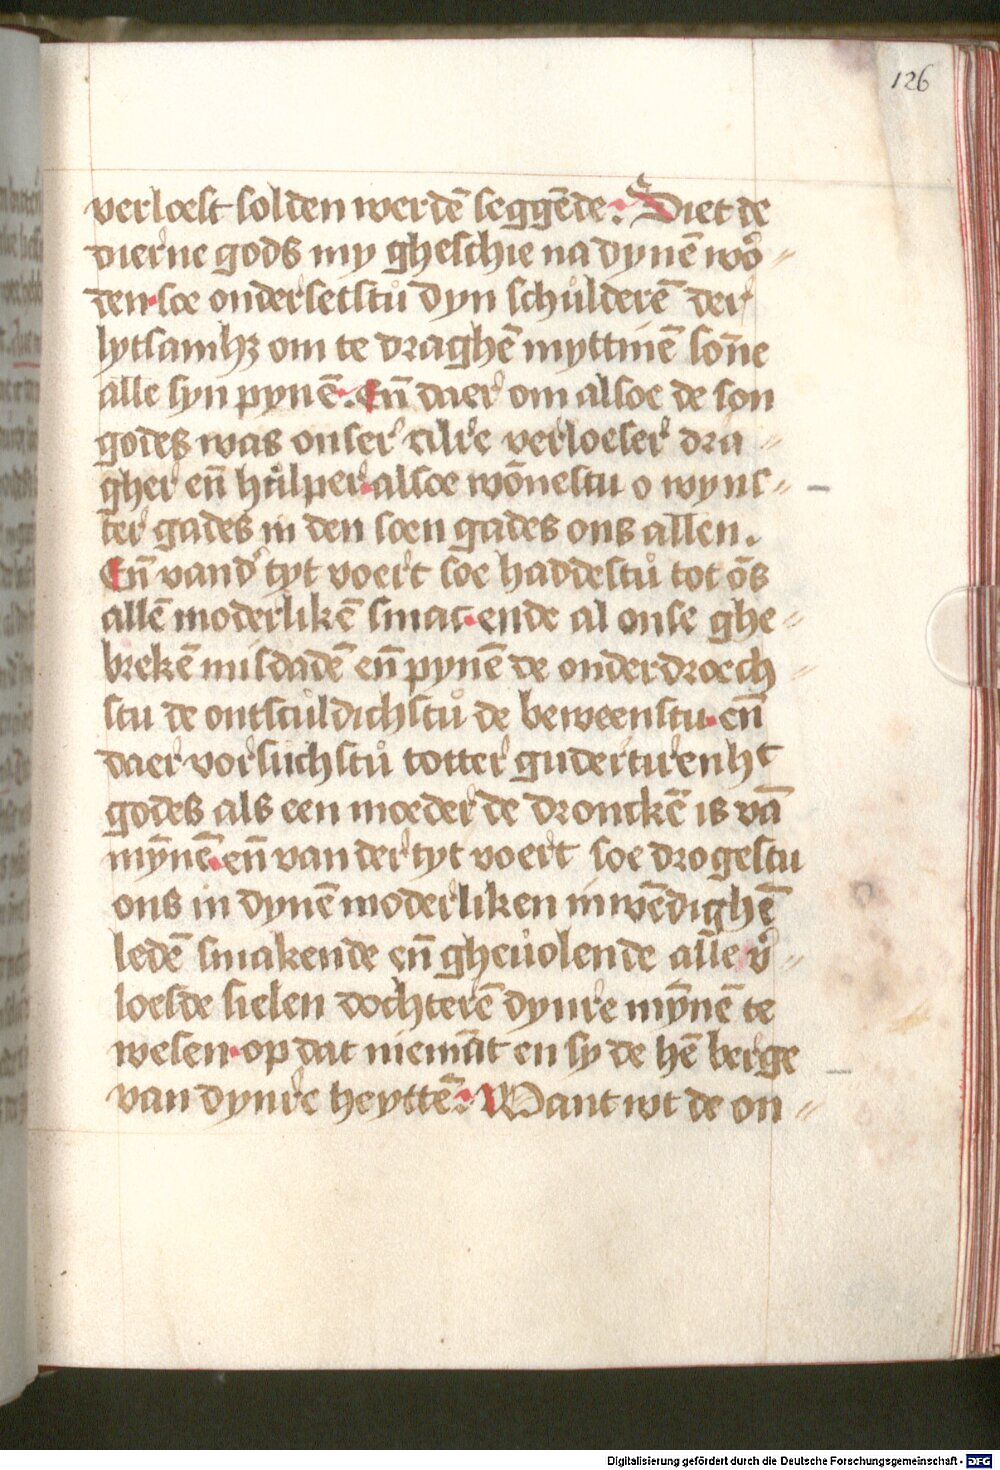 126
verloest solden werdē seggēde. Siet de
dierne gods my gheschie na dynē wo᷒
den. soe ondersetstu̇ dyn schu̇lderē der
lytsamhz om te draghē myttinē sōne
alle syn pynē. En̄ daer om alsoe de son
godes was onser alre verloeser dra
gher en̄ hu̇lper. alsoe wōnestu o wyns
ter gades in den soen gades ons allen.
En̄ vand᷒ tyt voert soe haddestu̇ tot ōs
allē moderlikē smac. ende al onse ghe
brekē misdadē en̄ pynē de onderdroech
stu de ontscu̇ldichstu̇ de beweenstu. en̄
daer vorsuchstu̇ totter guderturenht
godes als een moeder de dronckē is vā
mȳnē. en̄ van der tyt voert soe drogestu
ons in dynē moderliken inwēdighē
ledē smakende en̄ gheu̇olende alle v᷒
loesde sielen dochterē dynre mȳnē te
wesen. op dat niemāt en sy de hē berge
van dynre heyttē. Want wt de on
Digitalisierung gefördert durch die Deutsche Forschungsgemeinschaft - DFG